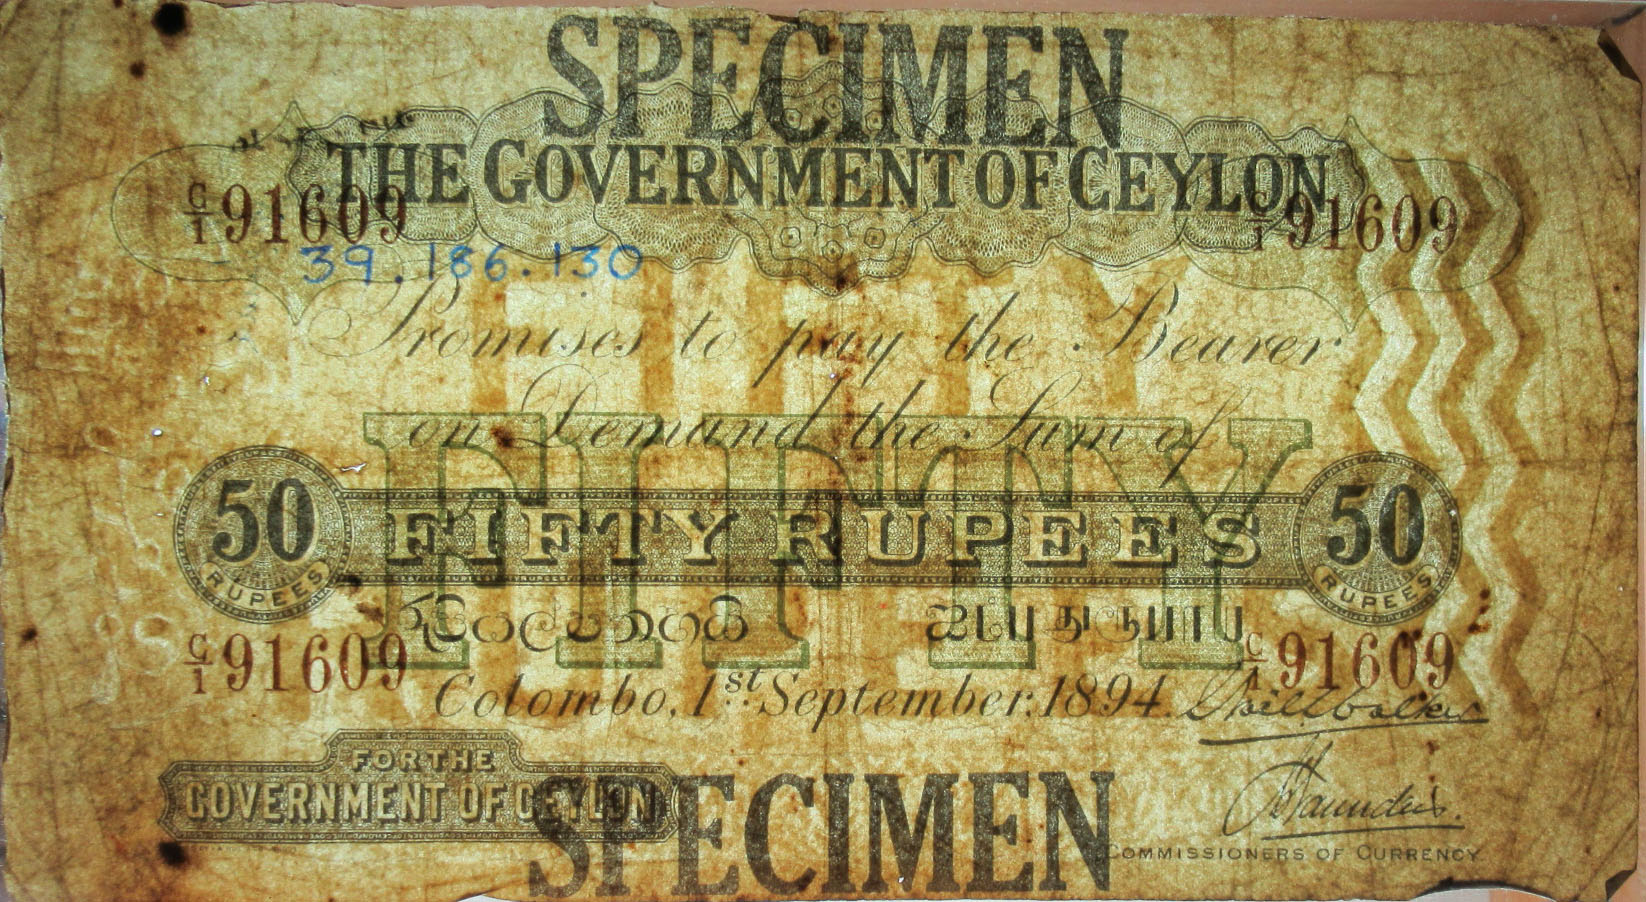 SPECIMEN
THE GOVERNMENT OF CEYLON
C/1 91609
C/1 91609
39.186.130
Promises to pay the Bearer
on Demand the Sum of
FIFTY
50 RUPEES
FIFTY RUPEES
50 RUPEES
ஐம்பது ரூபாய்
C/1 91609
C/1 91609
Colombo, 1st September, 1894.
FOR THE
GOVERNMENT OF CEYLON
SPECIMEN
COMMISSIONERS OF CURRENCY